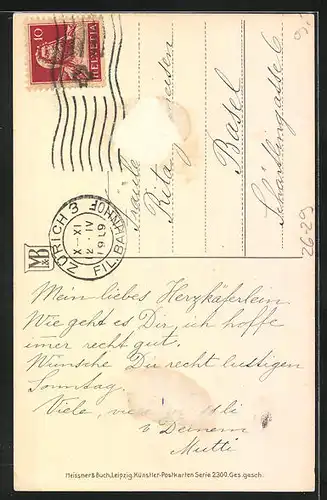 10
HELVETIA
ZÜRICH 3
X–XI
12. IV
1919
FIL. BAHNHOF
Fräulein
Rita
Basel
Schärtlingasse 6
26-29
M&B
Mein liebes Herzkäferlein
Wie geht es Dir, ich hoffe
imer recht gut.
Wünsche Dir recht lustigen
Sonntag.
Viele, viele
v Deinem
Mutti
Meissner & Buch, Leipzig. Künstler-Postkarten Serie 2300. Ges. gesch.